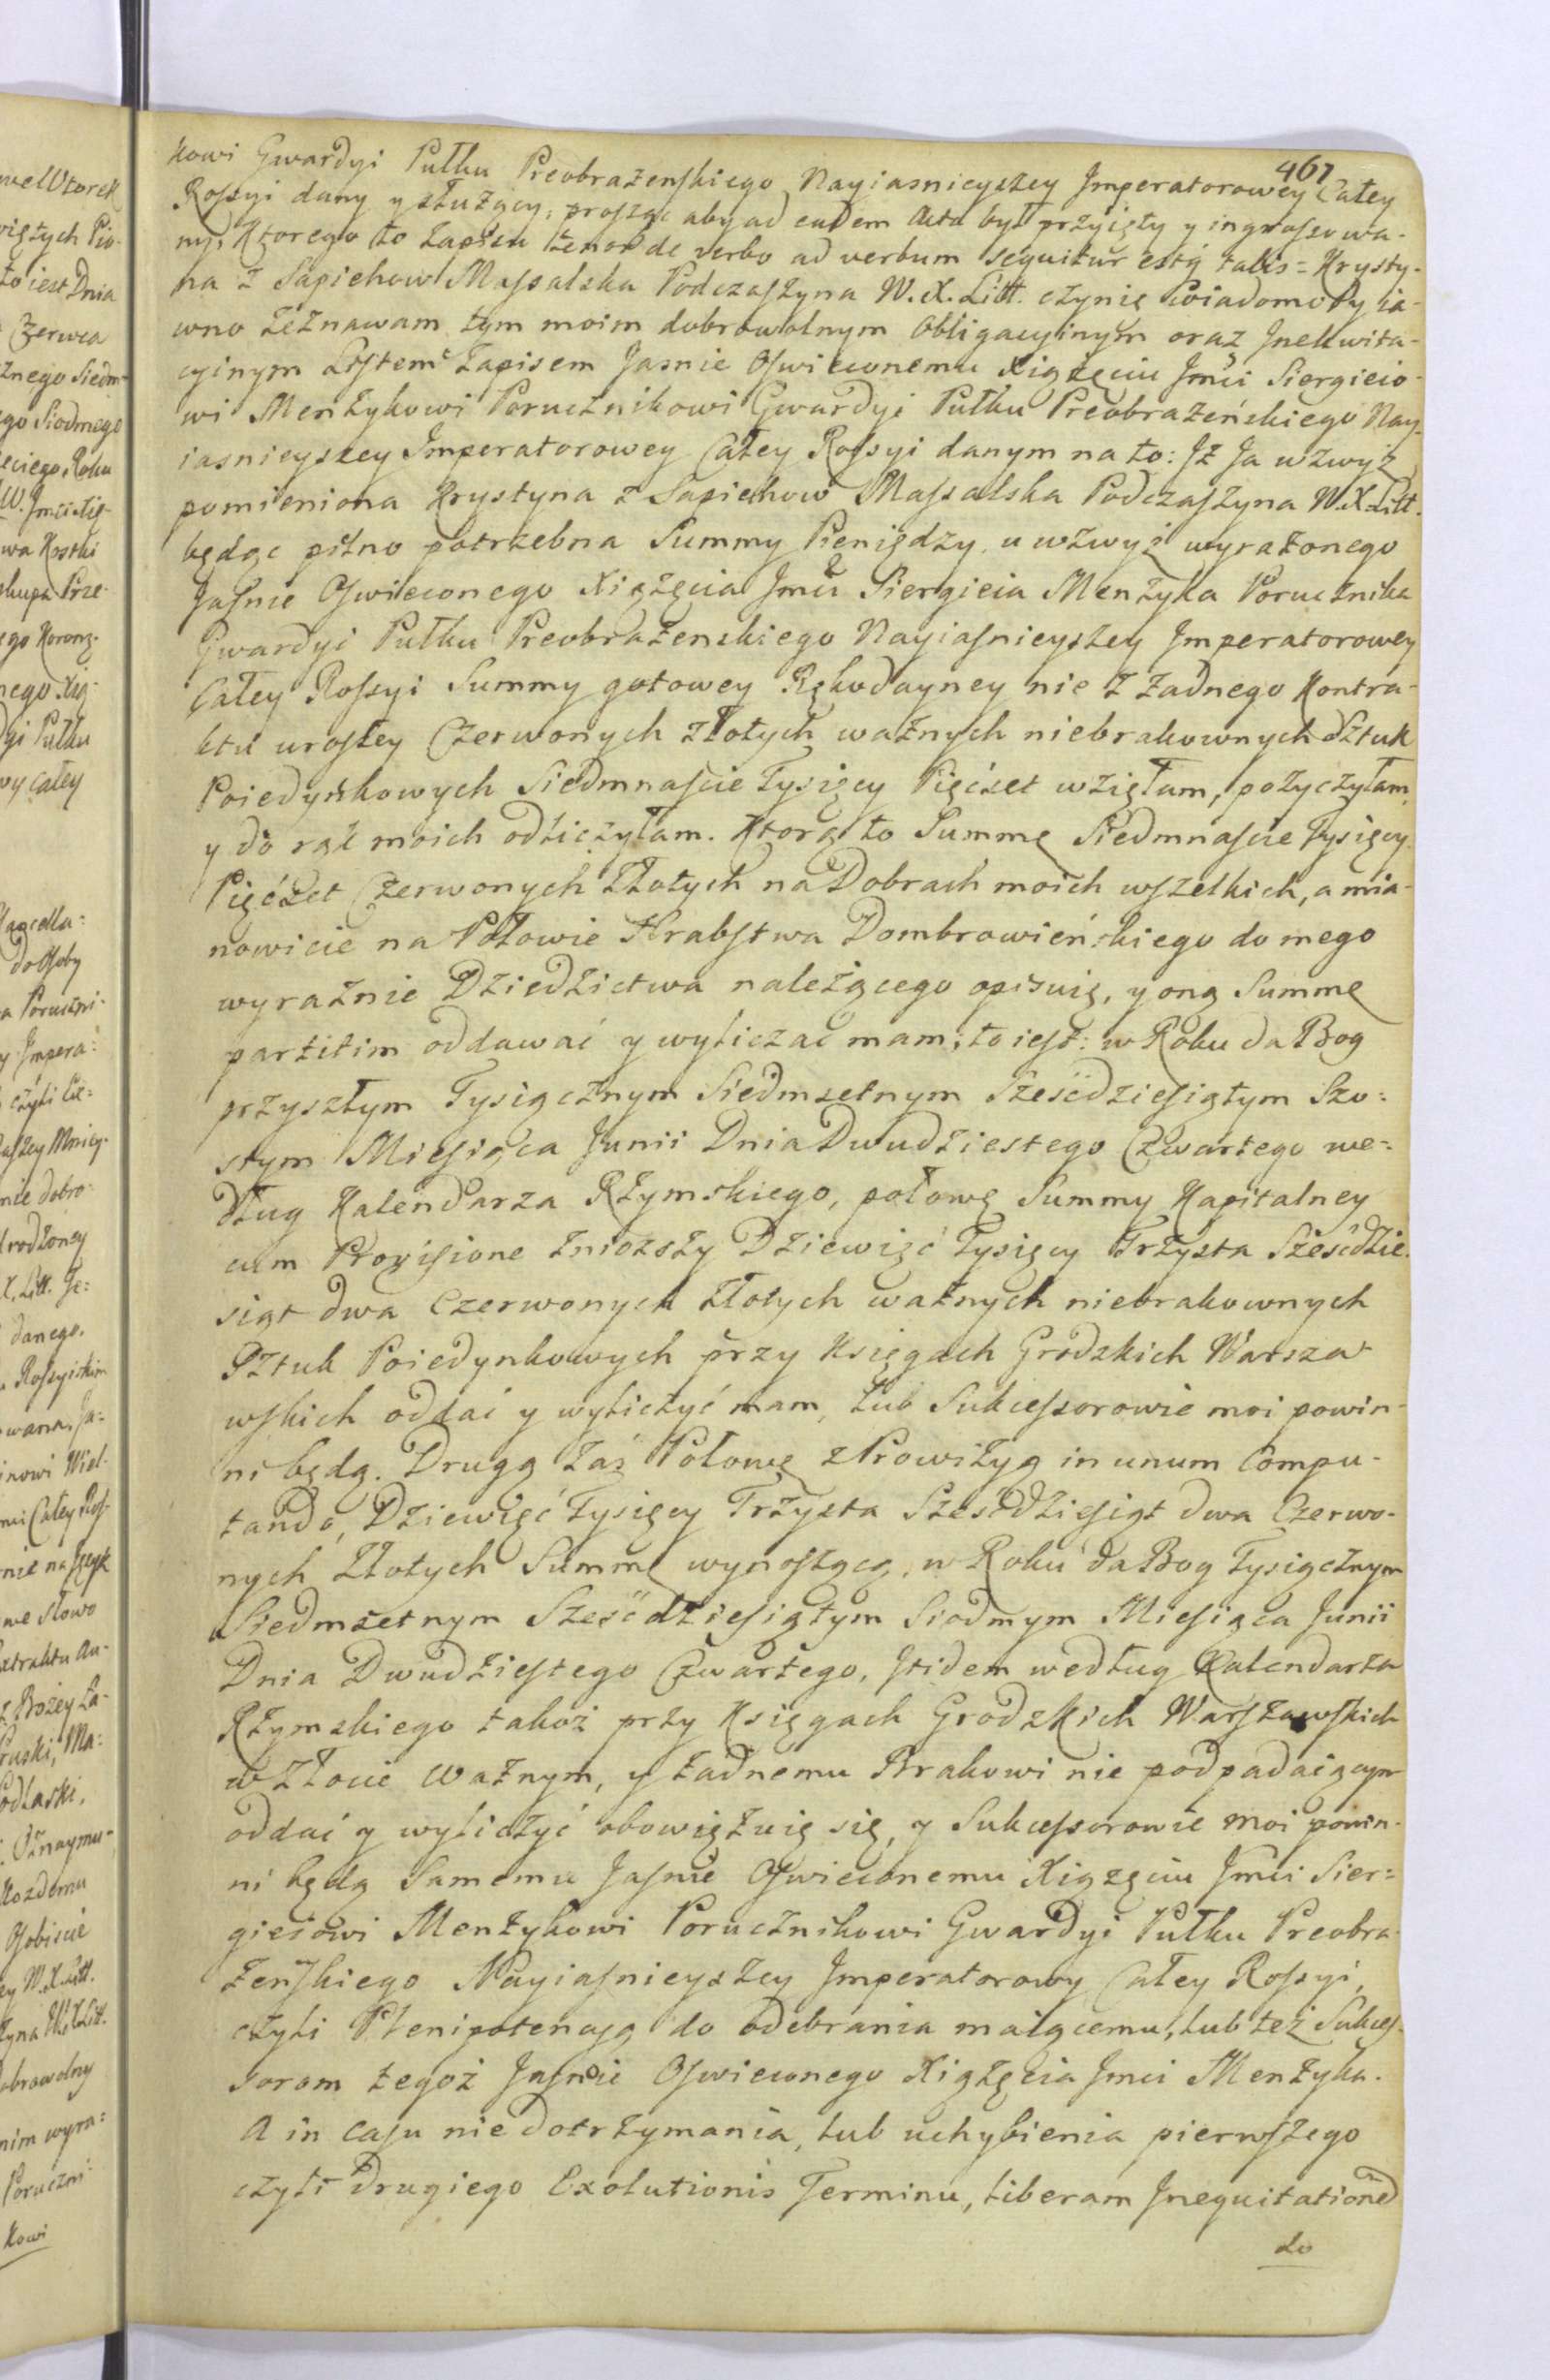 467
kowi Gwardyi Pułku Preobrażenſkiego Nayiasnieyszey Jmperatorowey Całey
Roſsyi dany y służący, proſząc aby ad eadem Acta był przyięty y ingroſsowa-
ny, Ktorego to Zapisu tenor de verbo ad verbum sequitur estq. talis = Krysty-
na z Sapiehow Maſsalska Podczaſzyna W. X. Litt. czynię wiadomo y ia-
wno zeznawam tym moim dobrowolnym Obligacyinym oraz Jnekwita-
cyinym Liſtem Zapisem Jasnie Oſwieconemu Xiążęciu Jmći Siergieio-
wi Menżykowi Porucznikowi Gwardyi Pułku Preobrażeńskiego Nay-
iasnieyszey Jmperatorowey Całey Roſsyi danym na to: Jż Ja wzwyż
pomieniona Krystyna z Sapiehow Maſsalska Podczaſzyna W. X. Litt.
będąc pilno potrzebna Summy Pieniędzy, u wzwyż wyrażonego
Jaſnie Oſwieconego Xiążęcia Jmći Siergieia Menżyka Porucznika
Gwardyi Pułku Preobrażenskiego Nayiaſnieyszey Jmperatorowey
Całey Roſsyi Summy gotowey Rękodayney nie z żadnego Kontra-
ktu uroſłey Czerwonych złotych ważnych niebrakownych Sztuk
Poiedynkowych Siedmnaſcie Tysięcy Pięćset wzięłam, pożyczyłam
y do rąk moich odliczyłam. Ktorą to Summę Siedmnaſcie Tysięcy
Pięćset Czerwonych Złotych na Dobrach moich wſzelkich, a mia-
nowicie na Połowie Hrabſtwa Dombrowieńskiego do mego
wyraźnie Dziedzictwa należącego opisuię, y oną Summę
partitim oddawać y wyliczać mam; to ieſt: w Roku da Bog
przyszłym Tysiącznym Siedmsetnym Sześćdzieſiątym Szo-
stym Mieſiąca Junii Dnia Dwudziestego Czwartego we-
dług Kalendarza Rzymskiego, połowę Summy Kapitalney
cum Proviſione zniozszy Dziewięć Tysięcy Trzysta Sześćdzie-
siąt dwa Czerwonych Złotych ważnych niebrakownych
Sztuk Poiedynkowych przy Księgach Grodzkich Warsza-
wſkich oddać y wyliczyć mam, lub Sukceſsorowie moi powin-
ni będą. Drugą zaś Połowę z Prowizyą in unum compu-
tando, Dziewięć Tysięcy Trzysta Sześćdzieſiąt dwa Czerwo-
nych Złotych Summę wynoſzącą, w Roku da Bog Tysiącznym
Siedmsetnym Sześćdzieſiątym Siodmym Mieſiąca Junii
Dnia Dwudzieſtego Czwartego, Jtidem według Calendarza
Rzymskiego takoż przy Księgach Grodzkich Warſzawſkich
w Złocie ważnym, y żadnemu Brakowi nie podpadaiącym
oddać y wyliczyć obowięzuię się, y Sukceſsorowie moi powin-
ni będą Samemu Jaſnie Oſwieconemu Xiążęciu Jmći Sier-
gieiowi Menżykowi Porucznikowi Gwardyi Pułku Preobra-
żeńſkiego Nayiaſnieyszey Jmperatorowy Całey Roſsyi,
czyli Plenipotencyą do odebrania maiącemu, lub też Sukceſ-
sorom tegoż Jaſnie Oſwieconego Xiążęcia Jmci Menżyka.
A in Caſu niedotrzymania, lub uchybienia pierwſzego
czyli drugiego Exolutionis Terminu, liberam Jnequitationem
do